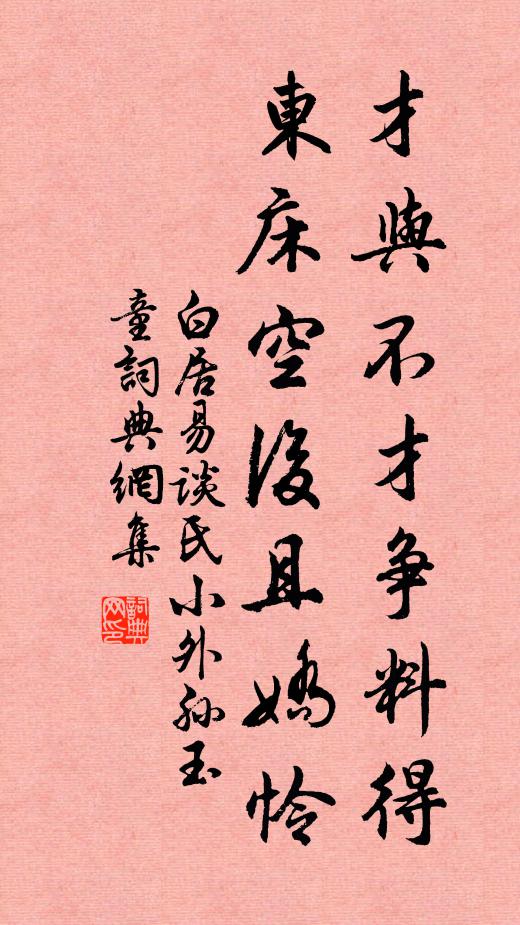 才與不才争料得
東床空後且嬌怜
白居易談氏小外孙玉
童詞典網集
詞典网印